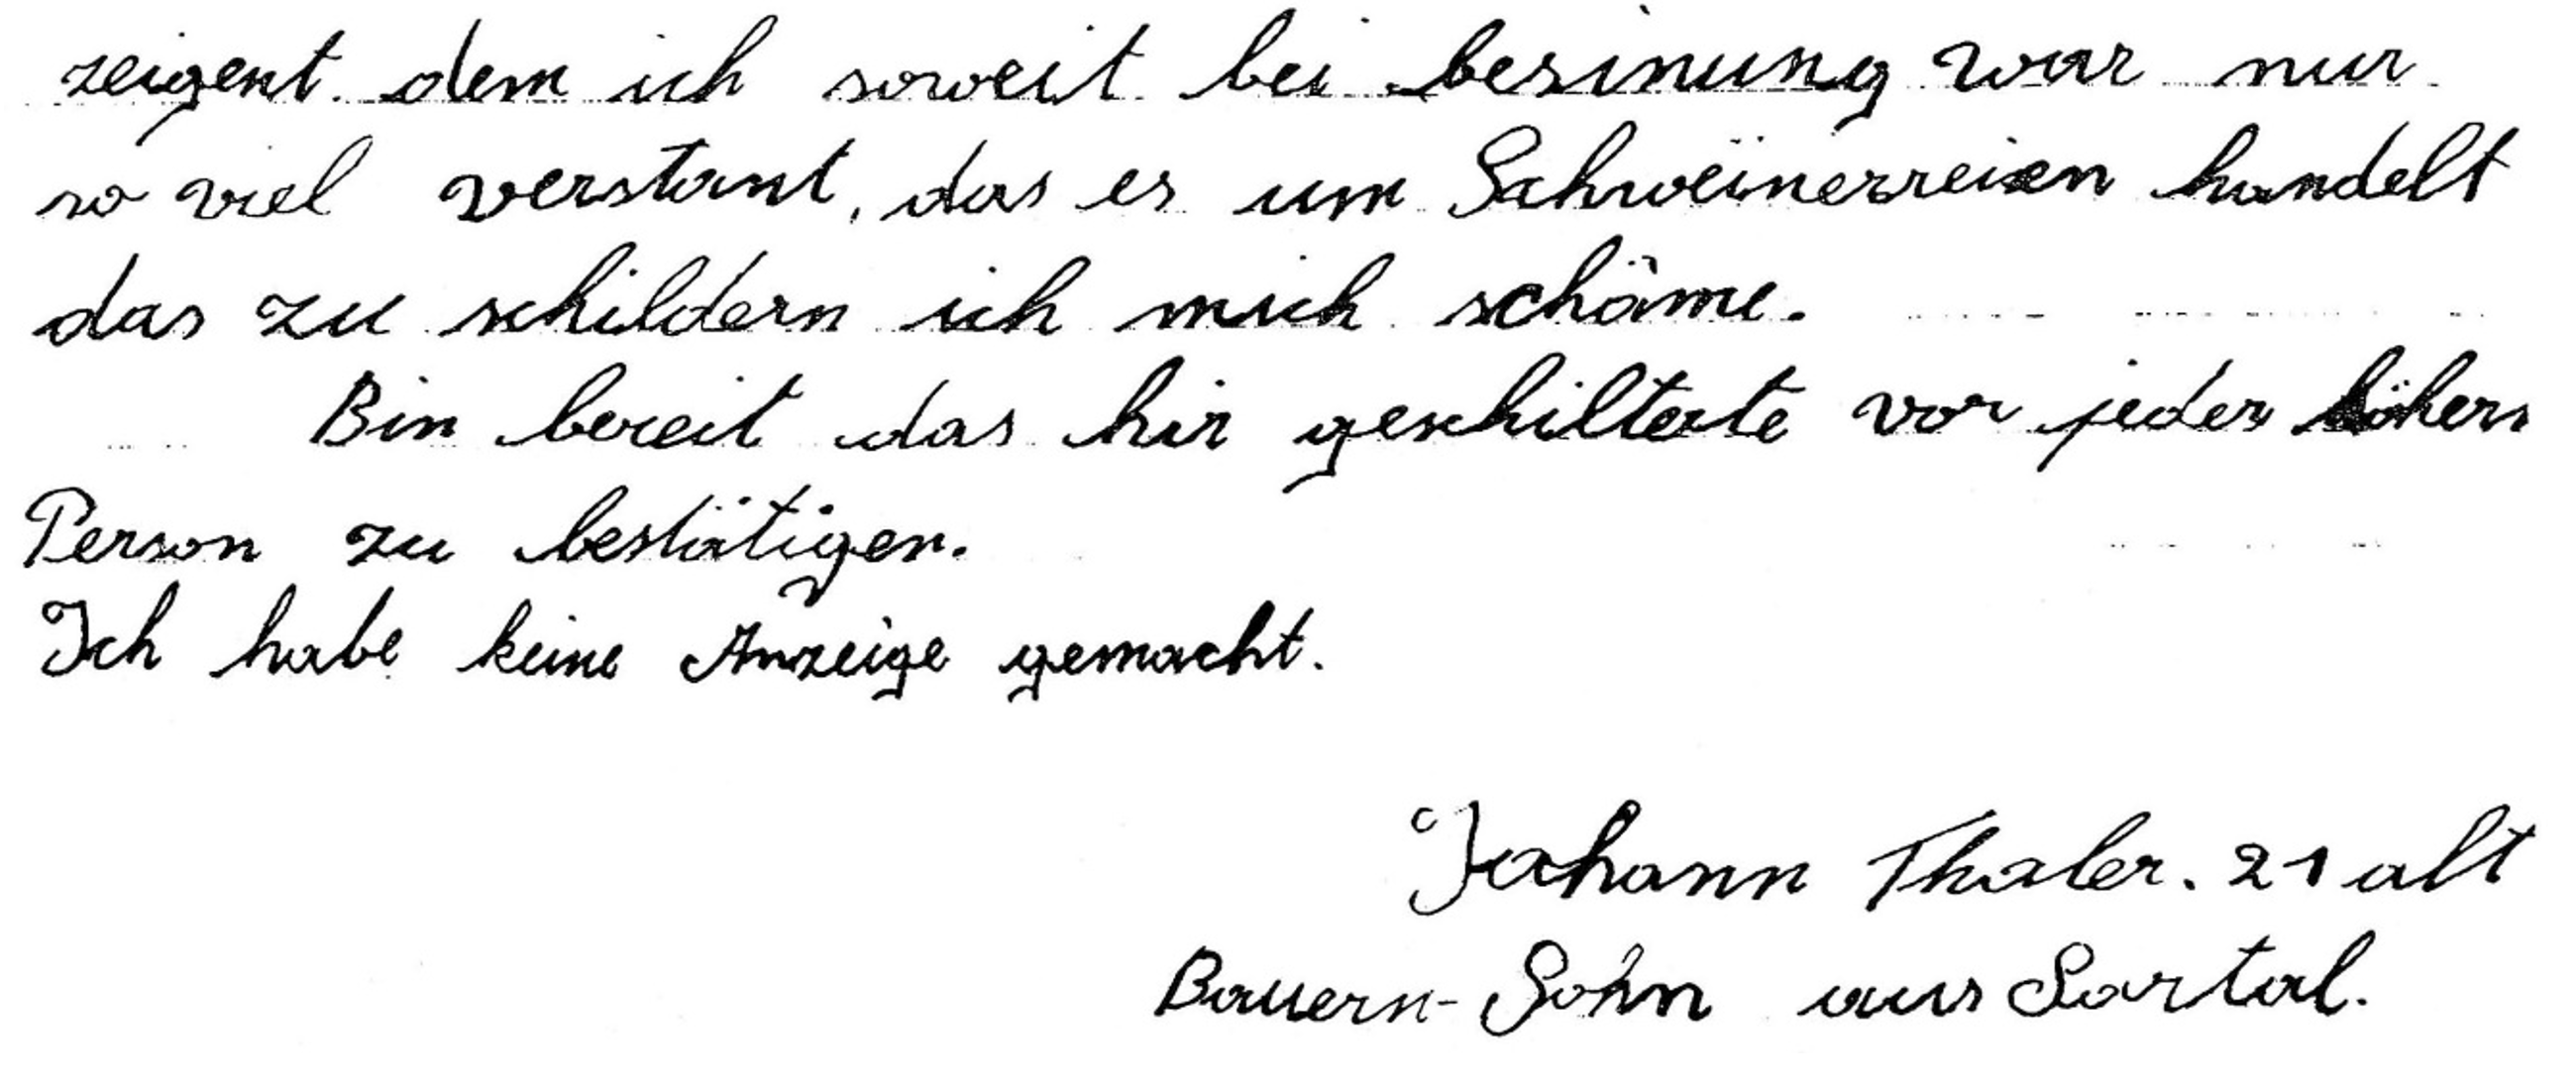 zeigent dem ich soweit bei besinung war nur
so viel verstant, das es um Schweinerreien handelt
das zu schildern ich mich schäme.
Bin bereit das hir geschilterte vor jeder höhern
Person zu bestätigen.
Ich habe keine Anzeige gemacht.
Johann Thaler. 21 alt
Bauern-Sohn aus Sartal.